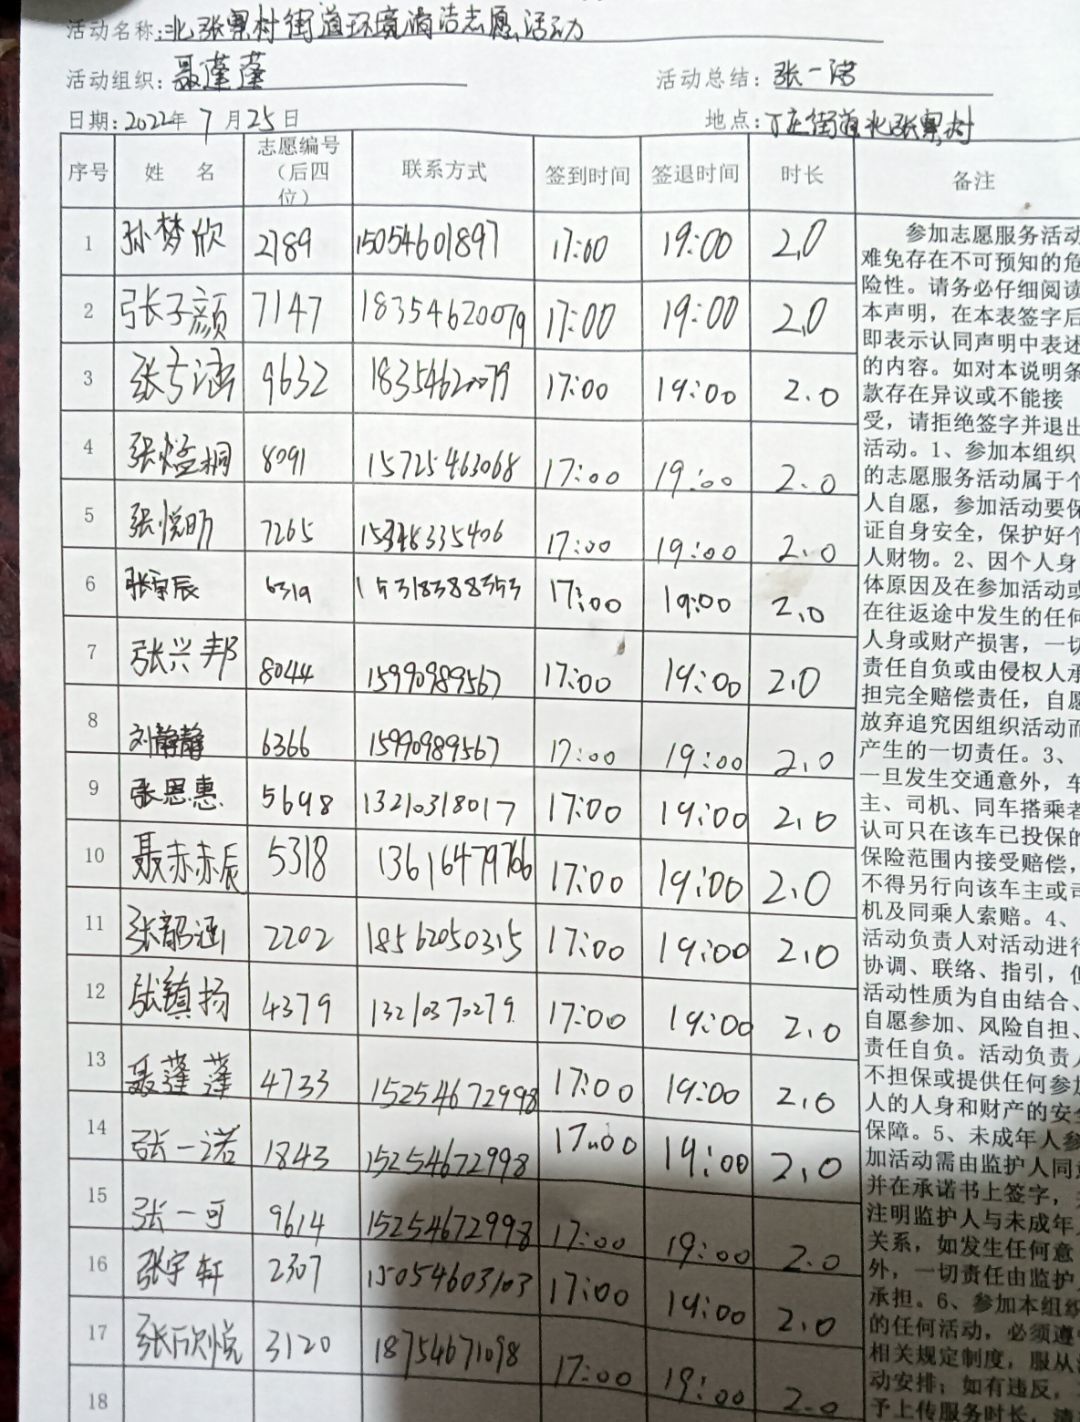 活动名称:北张寨村街道环境清洁志愿活动
活动组织:聂蓬蓬 活动总结:张一诺
日期:2022年7月25日 地点:丁庄街道北张寨村
序号 姓 名 志愿编号（后四位） 联系方式 签到时间 签退时间 时长 备注
1 孙梦欣 2789 15054601897 17:00 19:00 2.0
2 张子颜 7147 18354620079 17:00 19:00 2.0
3 9632 18354620079 17:00 19:00 2.0
4 8091 15725463068 17:00 19:00 2.0
5 张悦昕 7265 17:00 19:00 2.0
6 张宇辰 6319 15318388353 17:00 19:00 2.0
7 张兴邦 8044 15990989567 17:00 19:00 2.0
8 刘静静 6366 15990989567 17:00 19:00 2.0
9 张恩惠 5698 13210318017 17:00 19:00 2.0
10 聂赤赤辰 5318 17:00 19:00 2.0
11 张韶涵 2202 18562050315 17:00 19:00 2.0
12 张镇扬 4379 13210370279 17:00 19:00 2.0
13 聂蓬蓬 4733 15254672998 17:00 19:00 2.0
14 张一诺 1843 15254672998 17:00 19:00 2.0
15 张一可 9614 15254672998 17:00 19:00 2.0
16 张宇轩 2307 15054603103 17:00 19:00 2.0
17 张欣悦 3120 18754671098 17:00 19:00 2.0
18
参加志愿服务活动
难免存在不可预知的危
险性。请务必仔细阅读
本声明，在本表签字后
即表示认同声明中表述
的内容。如对本说明条
款存在异议或不能接
受，请拒绝签字并退出
活动。1、参加本组织
的志愿服务活动属于个
人自愿，参加活动要保
证自身安全，保护好个
人财物。2、因个人身
体原因及在参加活动或
在往返途中发生的任何
人身或财产损害，一切
责任自负或由侵权人承
担完全赔偿责任，自愿
放弃追究因组织活动而
产生的一切责任。3、
一旦发生交通意外，车
主、司机、同车搭乘者
认可只在该车已投保的
保险范围内接受赔偿，
不得另行向该车主或司
机及同乘人索赔。4、
活动负责人对活动进行
协调、联络、指引，但
活动性质为自由结合、
自愿参加、风险自担、
责任自负。活动负责人
不担保或提供任何参加
人的人身和财产的安全
保障。5、未成年人参
加活动需由监护人同意
并在承诺书上签字，
注明监护人与未成年人
关系，如发生任何意
外，一切责任由监护
承担。6、参加本组织
的任何活动，必须遵
相关规定制度，服从
动安排；如有违反，
予上传服务时长，请